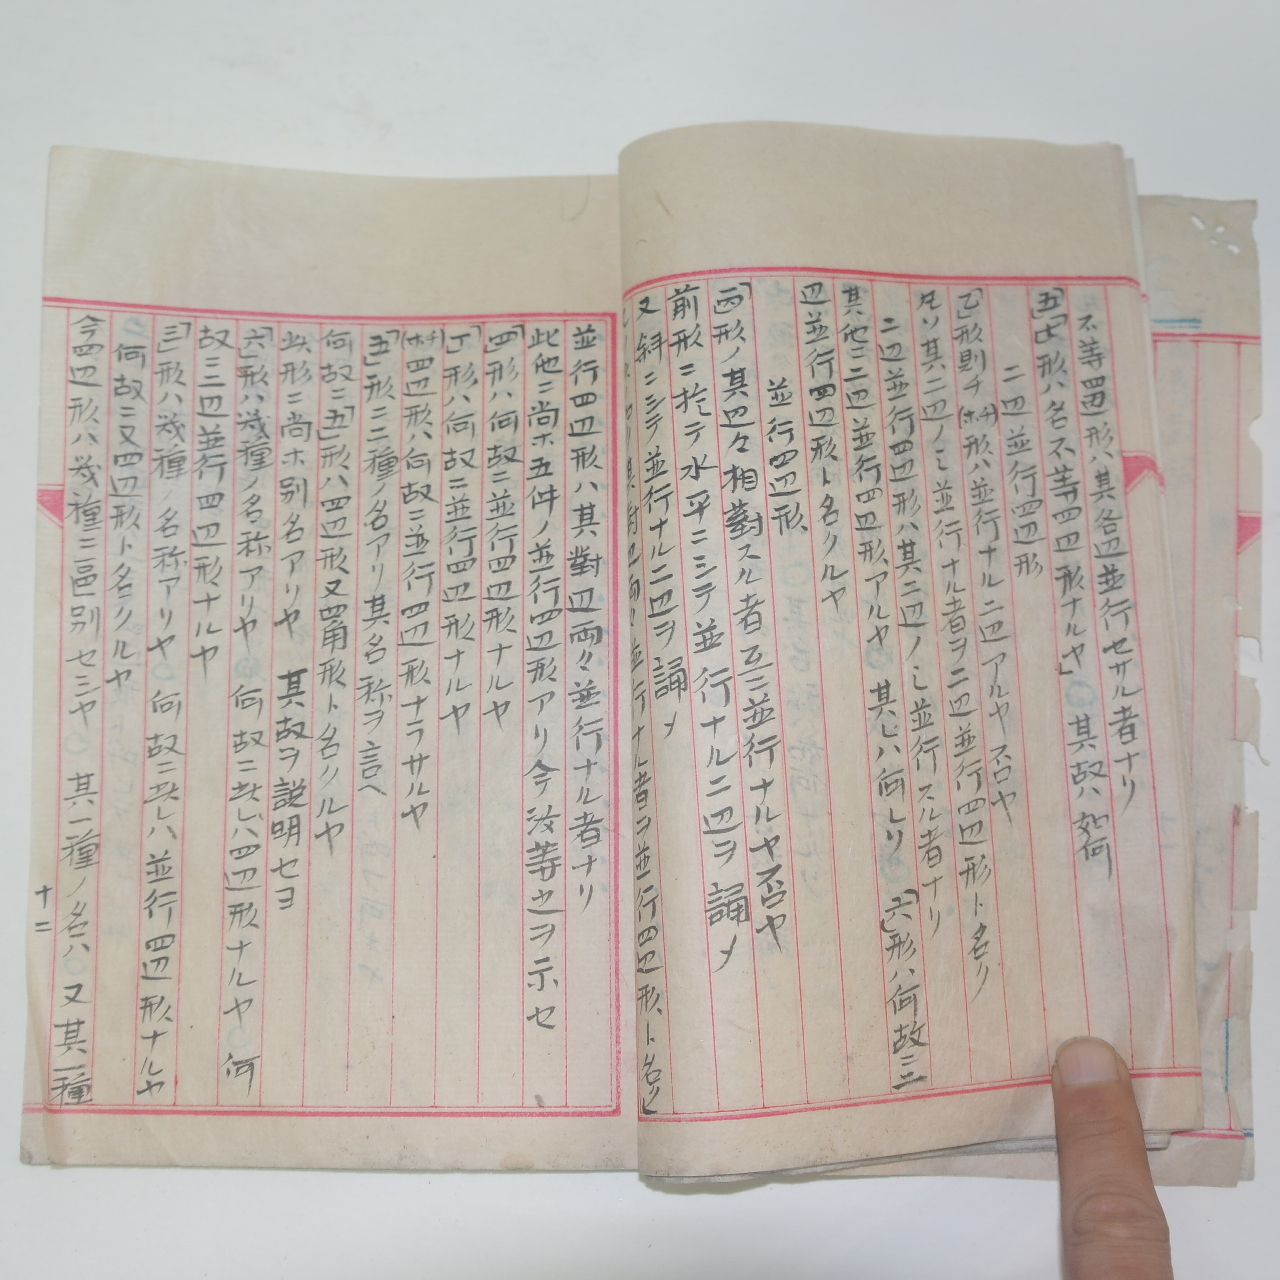 不等四辺形ハ其各辺並行セサル者ナリ
「五」「七」形ハ名不等四辺形ナルヤ」 其故ハ如何
二辺並行四辺形
「乙」形則チ(ホ)形ハ並行ナル二辺アルヤ否ヤ
凡ソ其二辺ノミ並行ナル者ヲ二辺並行四辺形ト名ク
二辺並行四辺形ハ其二辺ノミ並行スル者ナリ
其他ニ二辺並行四辺形アルヤ 其レハ何レソ 「六」形ハ何故ニ二
辺並行四辺形ト名クルヤ
並行四辺形
「丙」形ノ其辺々相對スル者互ニ並行ナルヤ否ヤ
前形ニ於テ水平ニシテ並行ナル二辺ヲ誦メ
又斜ニシテ並行ナル二辺ヲ誦メ
其對辺両々並行ナル者ヲ並行四辺形ト名ク
並行四辺形ハ其對辺両々並行ナル者ナリ
此他ニ尚ホ五件ノ並行四辺形アリ今汝等之ヲ示セ
「四」形ハ何故ニ並行四辺形ナルヤ
「丁」形ハ何故ニ並行四辺形ナルヤ
(ホ)四辺形ハ何故ニ並行四辺形ナラサルヤ
「五」形ニ二種ノ名アリ其名称ヲ言ヘ
何故ニ「五」形ハ四辺形又四角形ト名クルヤ
此形ニ尚ホ別名アリヤ 其故ヲ説明セヨ
「六」形ハ幾種ノ名称アリヤ 何故ニ此レハ四辺形ナルヤ 何
故ニ二辺並行四辺形ナルヤ
「三」形ハ幾種ノ名称アリヤ 何故ニ此レハ並行四辺形ナルヤ
何故ニ又四辺形ト名クルヤ
今四辺形ハ幾種ニ區別セシヤ 其一種ノ名ハ 又其一種
十二